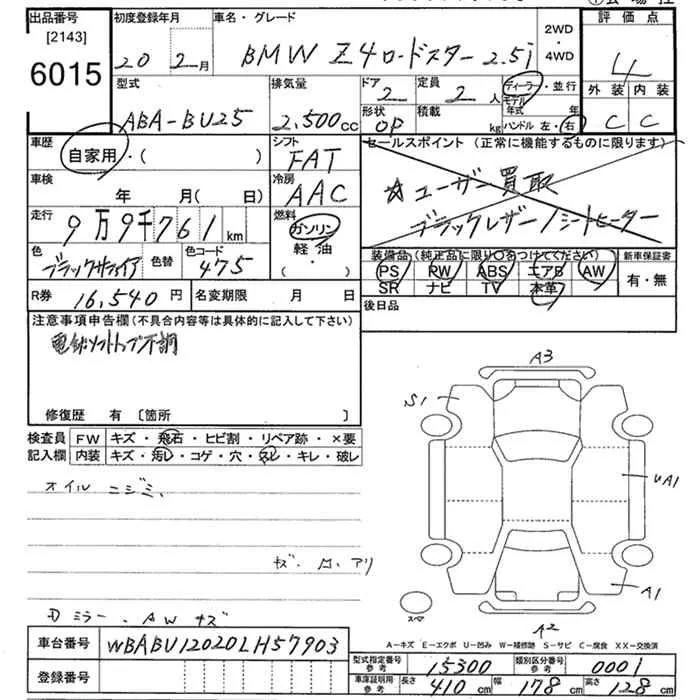 出品番号 初度登録年月 車名・グレード 2WD・4WD 評価点
[2143]
6015 20年 2月 BMW Z4ロードスター 2.5i 4
型式 排気量 ドア 定員 ディーラー・並行 外装 内装
ABA-BU25 2,500cc 2 2人 モデル年式 年 C C
形状 積載 kg ハンドル 左・右
OP
車歴 シフト セールスポイント (正常に機能するものに限ります)
自家用・( ) FAT
車検 冷房 ☆ユーザー買取
年 月(日) AAC ブラックレザー/シートヒーター
走行 燃料
9万9千761km ガソリン・軽油
色 色替 色コード 装備品 (純正品に限り○をつけてください) 新車保証書
ブラックサファイア 475 PS PW ABS エアB AW 有・無
SR ナビ TV 本革
R券 16,540円 名変期限 月 日 後日品
注意事項申告欄 (不具合内容等は具体的に記入して下さい)
電動ソフトトップ不調
修復歴 有 [箇所 ]
検査員 FW キズ・飛石・ヒビ割・リペア跡・×要
記入欄 内装 キズ・汚レ・コゲ・穴・スレ・キレ・破レ
オイルニジミ.
ミラー.AWキズ
A3
S1
UA1
A1
A2
スペア
A-キズ E-エクボ U-凹み W-補修跡 S-サビ C-腐食 XX-交換済
車台番号 WBABU12020LH57903
登録番号
型式指定番号 参考 15300 類別区分番号 参考 0001
車庫証明用 参考 長さ 410cm 幅 178cm 高さ 128cm